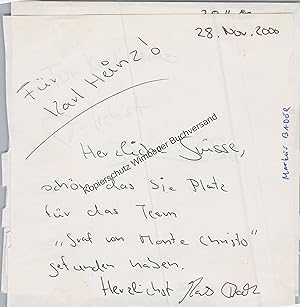 28. Nov. 2000
Für
Karl Heinz!
Herzliche Grüsse,
schön das Sie Platz
für das Team
"Graf von Monte Christo"
gefunden haben.
Herzlichst
Kopierschutz Wimbauer Buchversand
Markus BADER